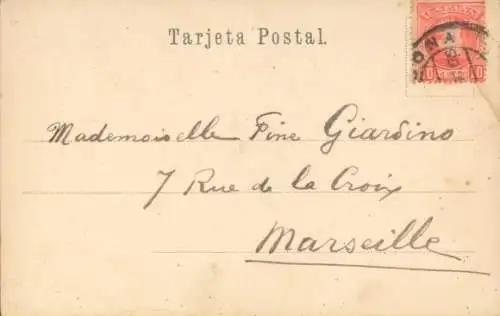 Tarjeta Postal.
ONA
10 10
Mademoiselle Fine Giardino
7 Rue de la Croix
Marseille